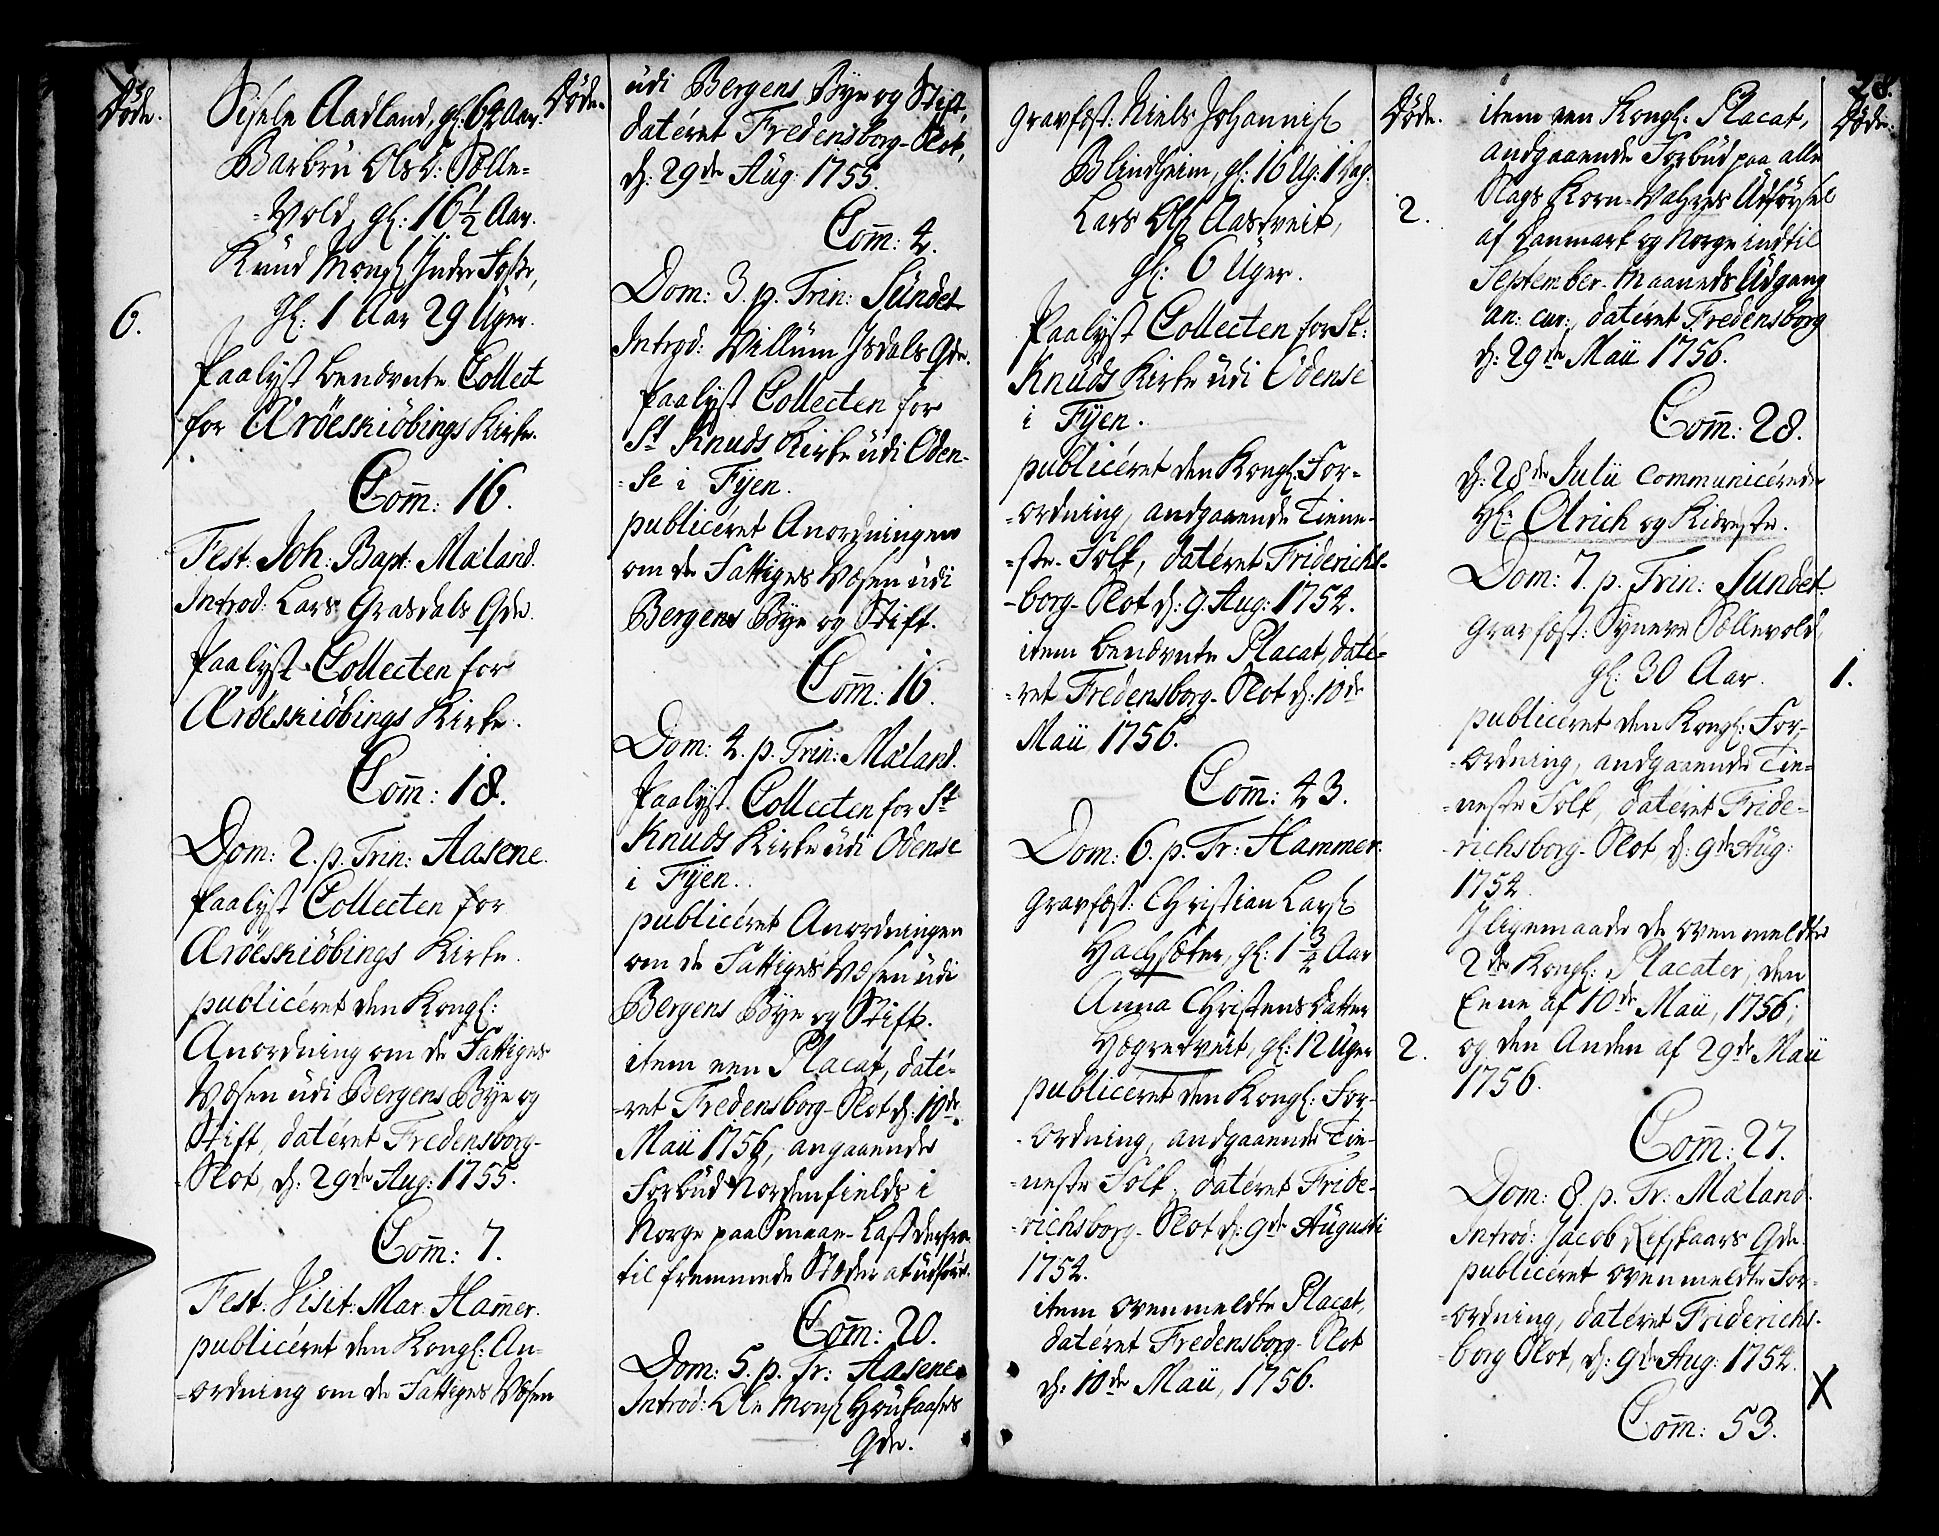 Døde.
Sisele Aadland, gl: 64 Aar.
Barbru Olsd: Sølle=
=Vold, gl: 16 1/2 Aar.
Knud Monss: Indre Fosse,
gl: 1 Aar 29 Uger.
6.
Paalyst benævnte Collect
for Æröeskiöbings Kirke.
Com̄: 16.
Fest: Joh: Bapt: Mæland.
Introd: Lars Grasdals Qde.
Paalyst Collecten for
Æröeskiöbings Kirke.
Com̄: 18.
Dom: 2. p. Trin: Aasene.
Paalyst Collecten for
Æröeskiöbings Kirke.
publicéret den Kongl:
Anordning om de Fattiges
Væsen udi Bergens Bye og
Stift, datéret Fredensborg-
Slot, d: 29de Aug: 1755.
Com̄: 7.
Fest: Visit: Mar: Ham̄er.
publicéret den Kongl: An-
=ordning om de Fattiges Væsen
Døde.
udi Bergens Bye og Stift,
datéret Fredensborg-Slot,
d: 29de Aug: 1755.
Com̄: 4.
Dom: 3. p. Trin: Sundet
Introd: Villum Isdals Qde.
Paalyst Collecten for
St Knuds Kirke udi Oden-
=se i Fÿen.
publicéret Anordningen
om de Fattiges Væsen udi
Bergens Bye og Stift.
Com̄: 16.
Dom: 4. p. Trin: Mæland.
Paalyst Collecten for St
Knuds Kirke udi Odense
i Fÿen.
publicéret Anordningen
om de Fattiges Væsen udi
Bergens Bye og Stift.
item een Placat, daté-
-ret Fredensborg-Slot d: 10de
Maii 1756, angaaende
Forbud Nordenfields i
Norge paa Smaae-Last derfra
til fremmede Stæder at udföre.
Com̄: 20.
Dom: 5. p. Tr: Aasene.
Introd: Ole Monss Haukaases
Qde.
gravfæst: Niels Johanniss
Blindheim, gl: 16 Ug: 1 dag.
Lars Ols Aastveit,
gl: 6 Uger.
Døde.
2.
Paalyst Collecten for St:
Knuds Kirke udi Odense
i Fÿen.
publicéret den Kongl: For-
=ordning, andgaaende Tiene-
=ste-Folk, datéret Friderichs-
-borg-Slot d: 9. Aug: 1754.
item benævnte Placat, daté-
-ret Fredensborg-Slot d: 10de
Maii 1756.
Com̄: 43.
Dom: 6. p. Tr: Hammer.
gravfæst: Christian Larss
Hachsæter, gl: 1 3/4 Aar
Anna Christens datter
Hægredveit, gl: 12 Uger
2.
publiceret den Kongl: For-
-ordning, andgaaende Tie-
-neste Folk, datéret Fride-
-richsborg-Slot d: 9de Augusti
1754.
item ovenmeldte Placat,
datéret Fredensborg-Slot
d: 10de Maii, 1756.
28.
Døde.
item een Kongl: Placat,
andgaaende Forbud paa alle
Slags Korn-Vahres Udförsel
af Danmark og Norge indtil
September-Maaneds Udgang
an: cur:, datéret Fredensborg
d: 29de Maii 1756.
Com̄: 28.
d: 28de Julii communicérede
Hl: Olrich og Kiæreste.
Dom: 7. p. Trin: Sundet
gravfæst: Synneve Søllevold,
gl: 30 Aar.
1.
publiceret den Kongl: For-
-ordning, andgaaende Tie-
-neste Folk, datéret Fride-
-richsborg-Slot, d: 9de Aug:
1754.
Iligemaade de ovenmeldte
2de Kongl: Placater, den
Eene af 10de Maii, 1756,
og den Anden af 29de Maii
1756.
Com̄: 27.
Dom: 8. p. Tr: Mæland.
Introd: Jacob Refskaars Qde.
publicéret ovenmeldte For-
-ordning, datéret Friderichs-
-borg Slot, d: 9de Aug: 1754.
X
Com̄: 53.